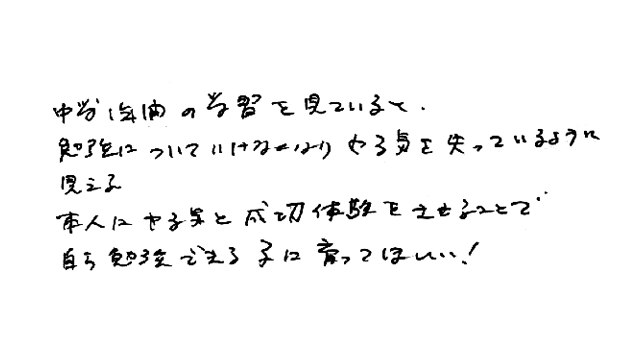 中学準備の学習を見ていると、
勉強についていけなくなり やる気を失っているように
見える
本人にやる気と成功体験をさせることで
自ら勉強できる子に育ってほしい!